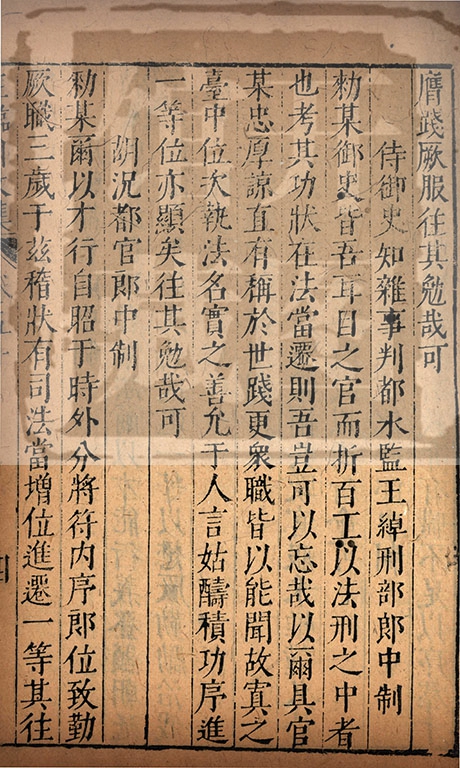 膺踐厥服往其勉哉可
侍御史知雜事判都水監王綽刑部郎中制
勑某御史皆吾耳目之官而折百工以法刑之中者
也考其功狀在法當遷則吾豈可以忘哉以爾具官
某忠厚諒直有稱於世踐更衆職皆以能聞故寘之
臺中位次執法名實之善允于人言姑疇積功序進
一等位亦顯矣往其勉哉可
胡況都官郎中制
勑某爾以才行自昭于時外分將符內序郎位致勤
厥職三歲于玆稽狀有司法當增位進遷一等其往